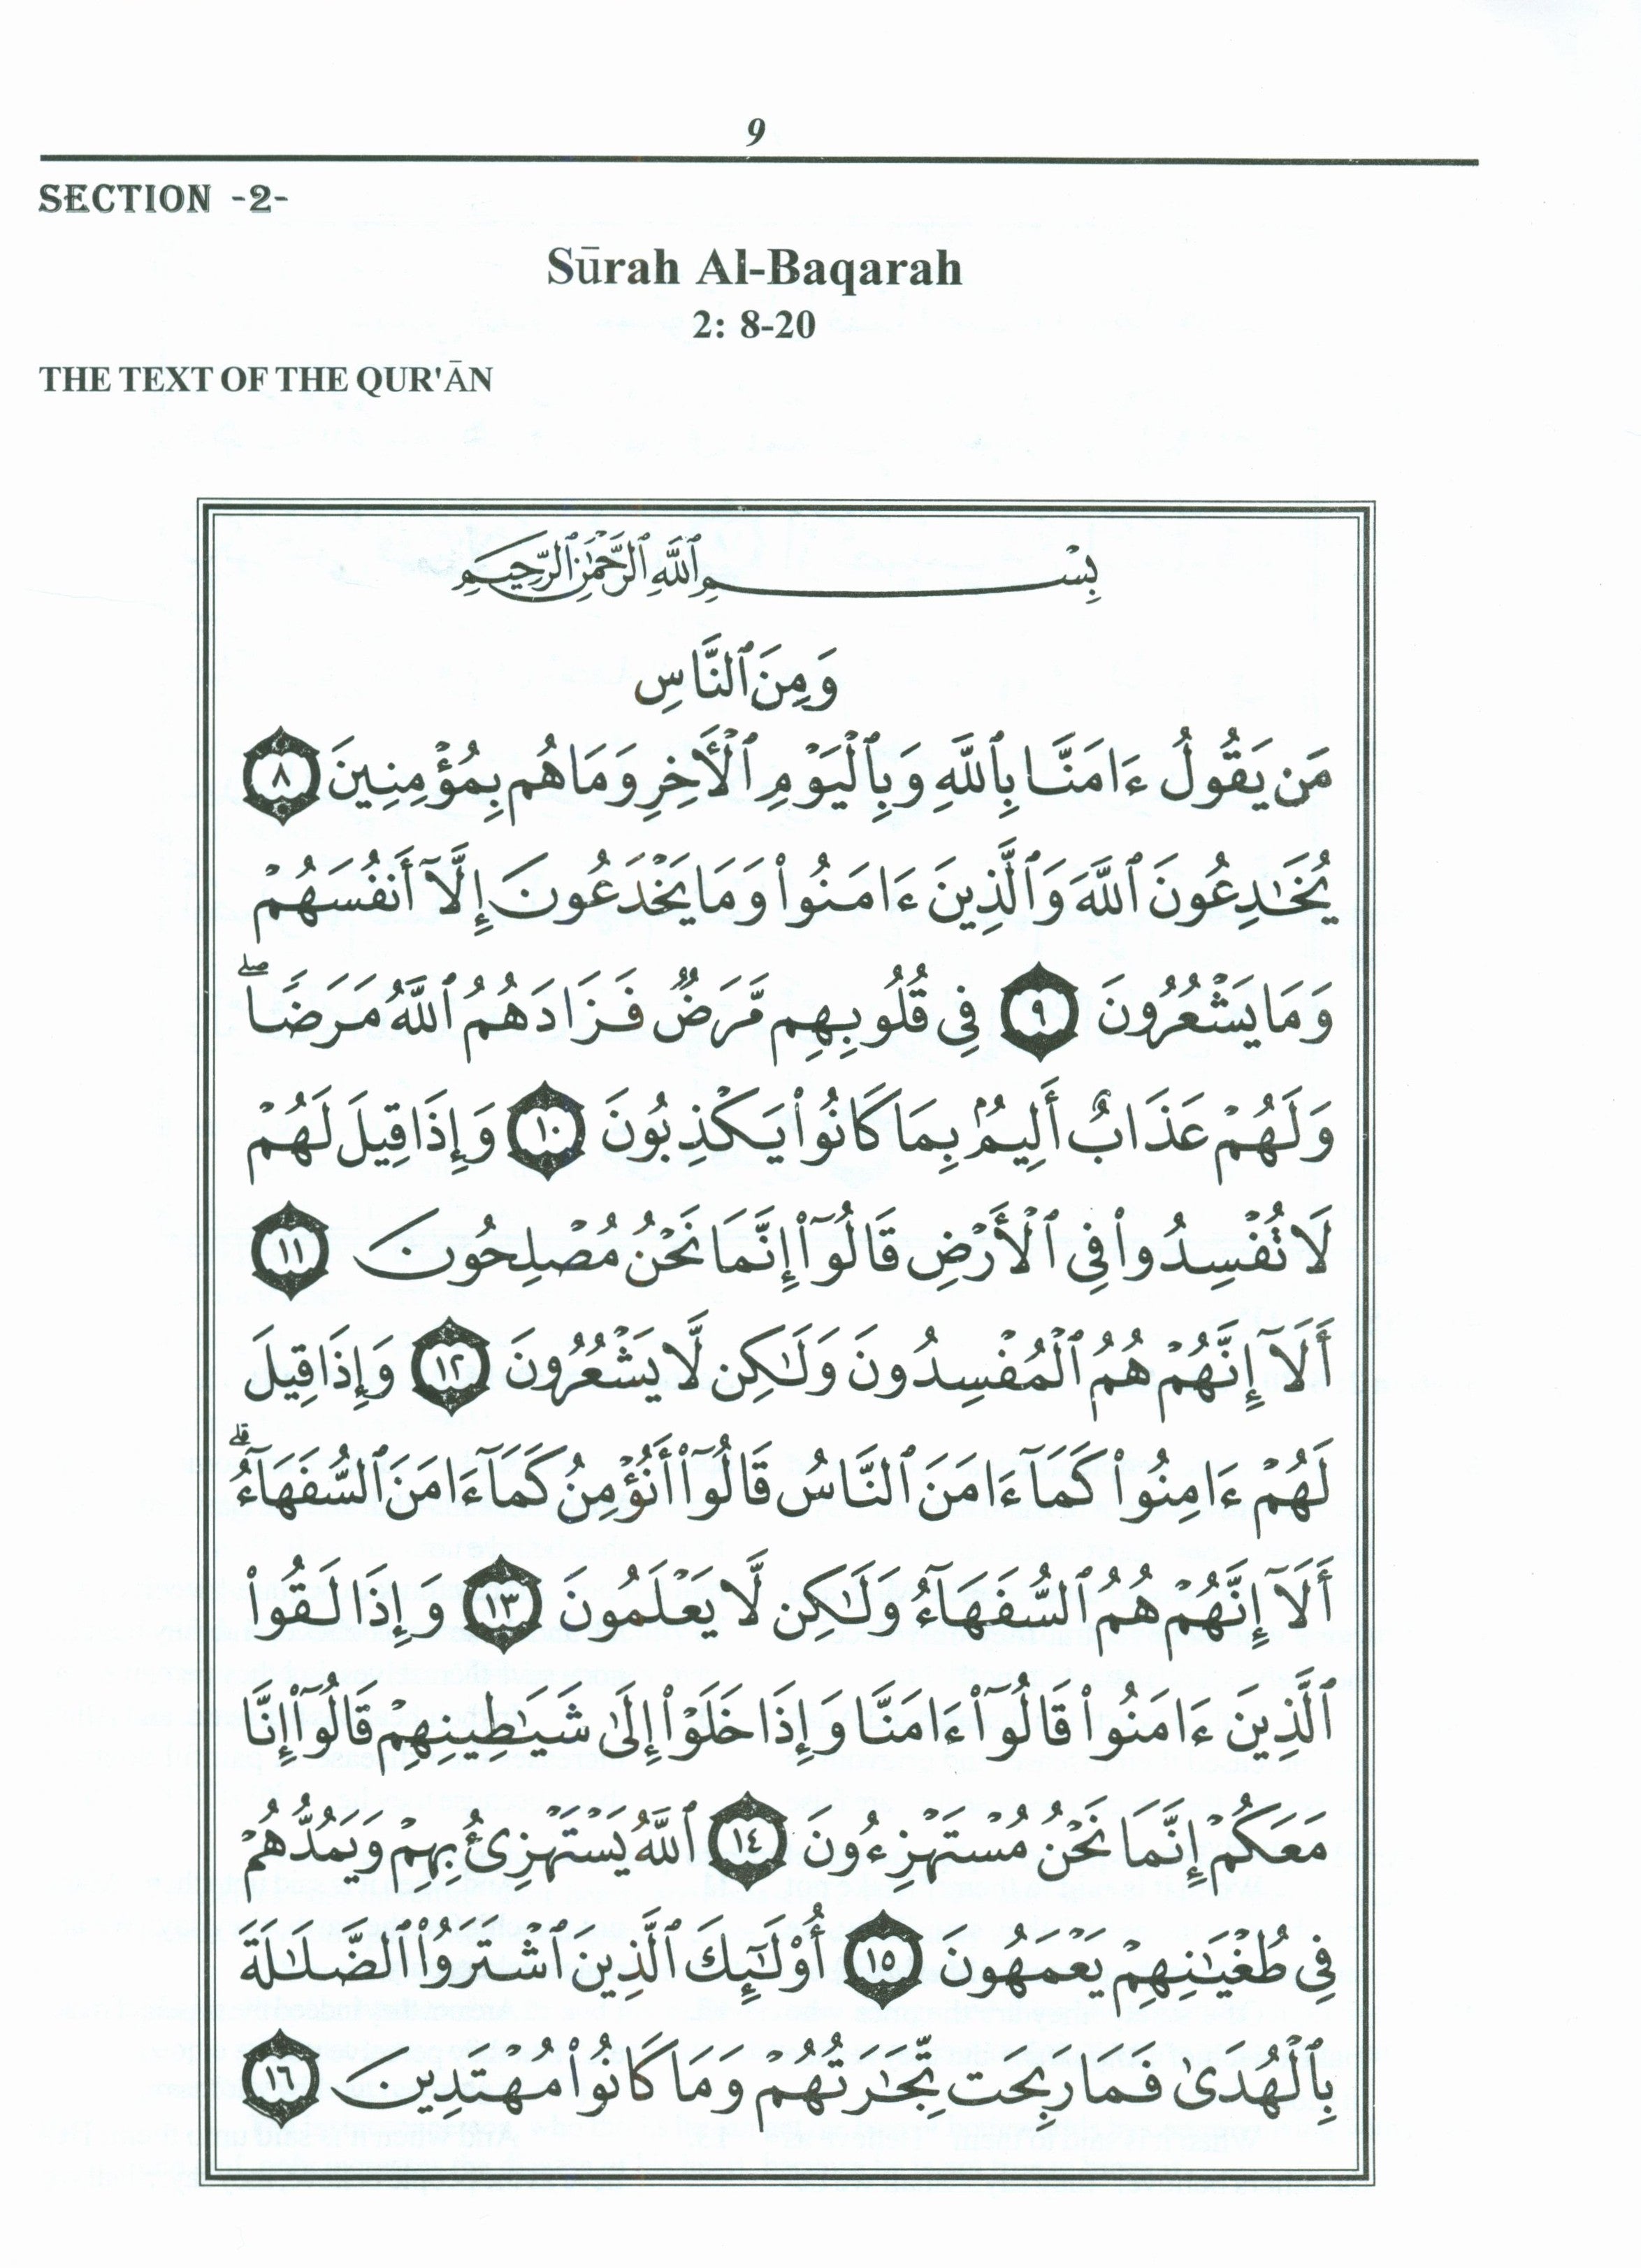 9
SECTION -2-
Sūrah Al-Baqarah
2: 8-20
THE TEXT OF THE QUR'ĀN
بِسْمِ ٱللَّهِ ٱلرَّحْمَٰنِ ٱلرَّحِيمِ
وَمِنَ ٱلنَّاسِ
مَن يَقُولُ ءَامَنَّا بِٱللَّهِ وَبِٱلْيَوْمِ ٱلْأَخِرِ وَمَا هُم بِمُؤْمِنِينَ ٨
يُخَٰدِعُونَ ٱللَّهَ وَٱلَّذِينَ ءَامَنُوا۟ وَمَا يَخْدَعُونَ إِلَّآ أَنفُسَهُمْ
وَمَا يَشْعُرُونَ ٩ فِى قُلُوبِهِم مَّرَضٌ فَزَادَهُمُ ٱللَّهُ مَرَضًا ۖ
وَلَهُمْ عَذَابٌ أَلِيمٌۢ بِمَا كَانُوا۟ يَكْذِبُونَ ١٠ وَإِذَا قِيلَ لَهُمْ
لَا تُفْسِدُوا۟ فِى ٱلْأَرْضِ قَالُوٓا۟ إِنَّمَا نَحْنُ مُصْلِحُونَ ١١
أَلَآ إِنَّهُمْ هُمُ ٱلْمُفْسِدُونَ وَلَٰكِن لَّا يَشْعُرُونَ ١٢ وَإِذَا قِيلَ
لَهُمْ ءَامِنُوا۟ كَمَآ ءَامَنَ ٱلنَّاسُ قَالُوٓا۟ أَنُؤْمِنُ كَمَآ ءَامَنَ ٱلسُّفَهَآءُ ۗ
أَلَآ إِنَّهُمْ هُمُ ٱلسُّفَهَآءُ وَلَٰكِن لَّا يَعْلَمُونَ ١٣ وَإِذَا لَقُوا۟
ٱلَّذِينَ ءَامَنُوا۟ قَالُوٓا۟ ءَامَنَّا وَإِذَا خَلَوْا۟ إِلَىٰ شَيَٰطِينِهِمْ قَالُوٓا۟ إِنَّا
مَعَكُمْ إِنَّمَا نَحْنُ مُسْتَهْزِءُونَ ١٤ ٱللَّهُ يَسْتَهْزِئُ بِهِمْ وَيَمُدُّهُمْ
فِى طُغْيَٰنِهِمْ يَعْمَهُونَ ١٥ أُو۟لَٰٓئِكَ ٱلَّذِينَ ٱشْتَرَوُا۟ ٱلضَّلَٰلَةَ
بِٱلْهُدَىٰ فَمَا رَبِحَت تِّجَٰرَتُهُمْ وَمَا كَانُوا۟ مُهْتَدِينَ ١٦